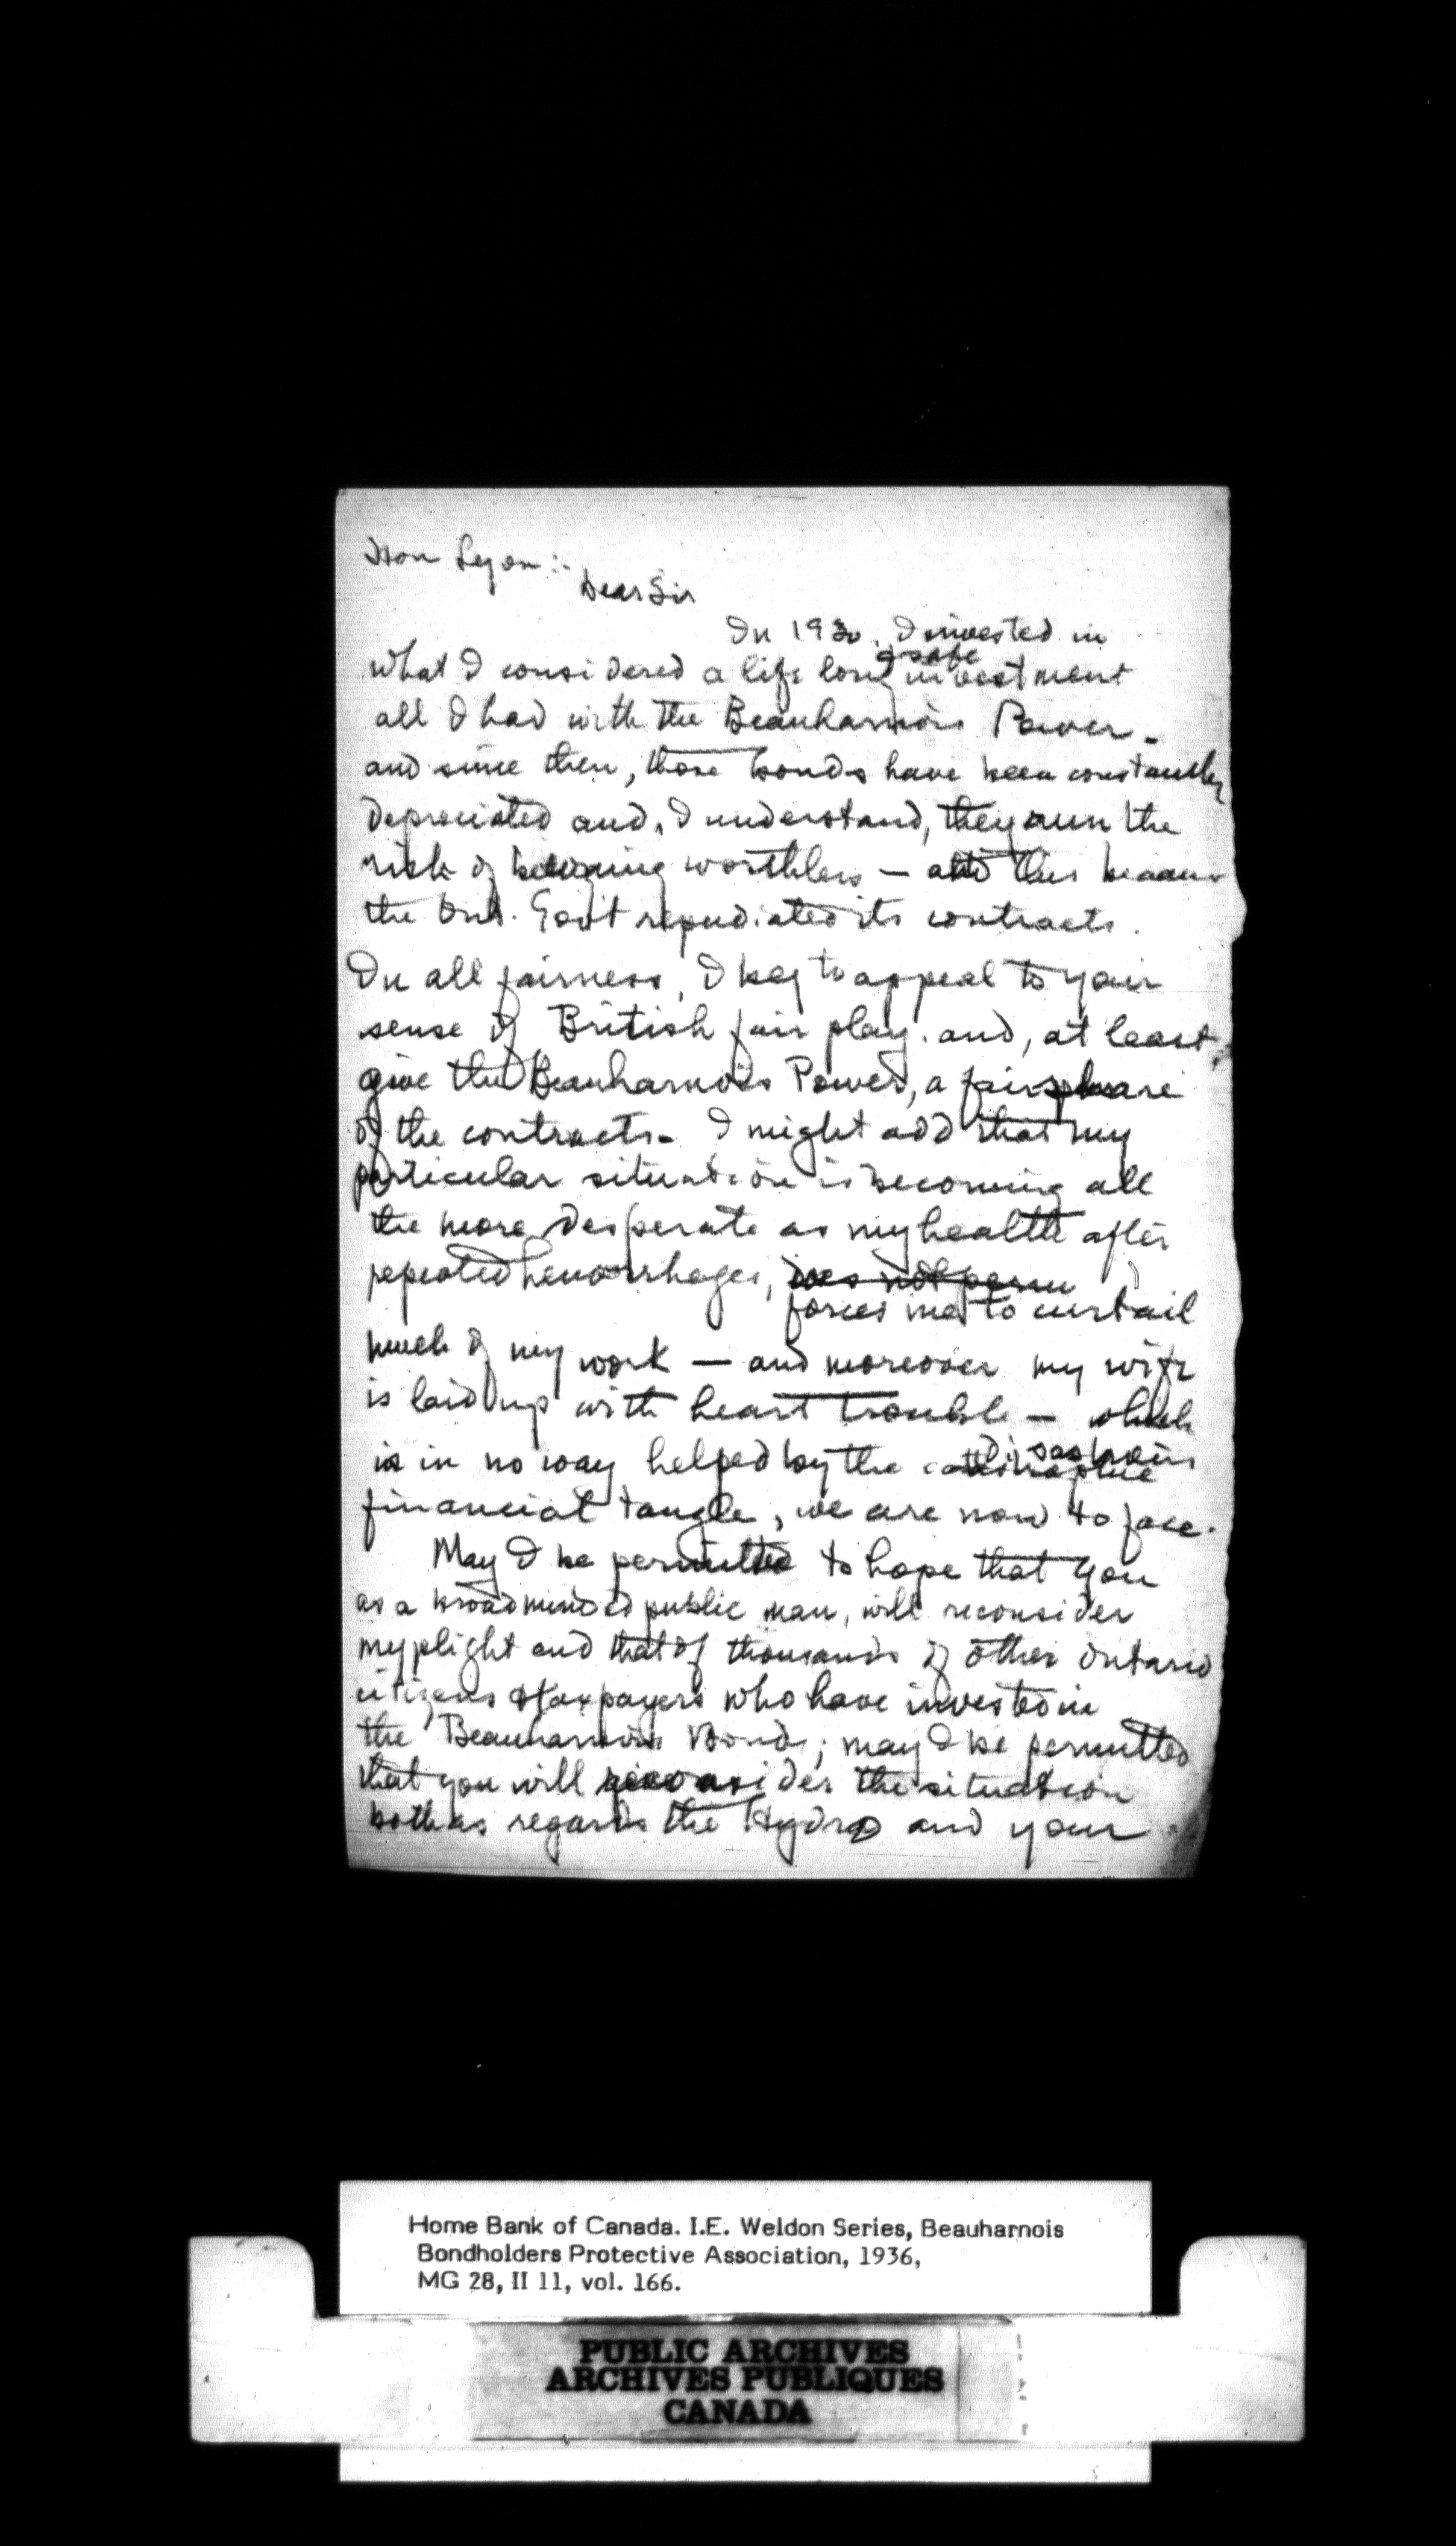 Hon Lyon :-
Dear Sir
In 1930. I invested in
what I considered a life long & safe investment
all I had with the Beauharnois Power -
and since then, those bonds have been constantly
depreciated and, I understand, they run the
risk of becoming worthless — and this because
the Ont. Gov't repudiated its contracts.
In all fairness, I beg to appeal to your
sense of British fair play. and, at least,
give the Beauharnois Power, a fair share
of the contracts. I might add that my
particular situation is becoming all
the more desperate as my health after
repeated hemorrhages, does not perm
forces me to curtail
much of my work — and moreover my wife
is laid up with heart trouble — which
disastrous
is in no way helped by the catastrophic
financial tangle, we are now to face.
May I be permitted to hope that you
as a broadminded public man, will reconsider
my plight and that of thousands of other Ontario
citizens & taxpayers who have invested in
the Beauharnois Bonds; may I be permitted
that you will reconsider the situation
both as regards the Hydro and your
Home Bank of Canada. I.E. Weldon Series, Beauharnois
Bondholders Protective Association, 1936,
MG 28, II 11, vol. 166.
PUBLIC ARCHIVES
ARCHIVES PUBLIQUES
CANADA